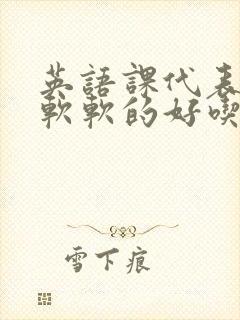 英語課代表
軟軟的好喫
雪下痕